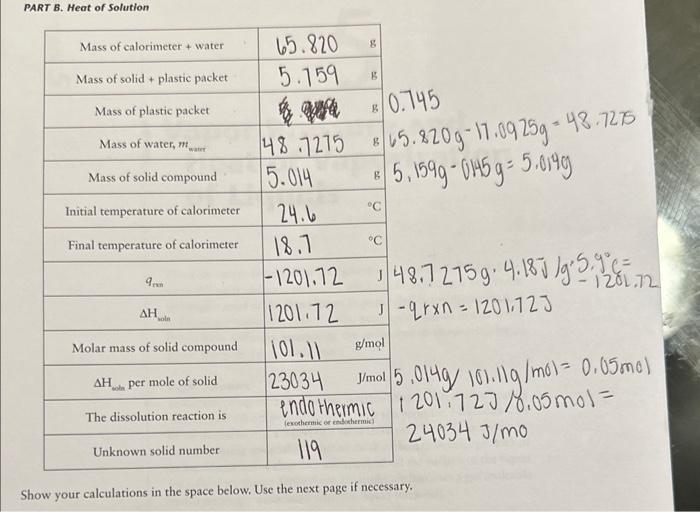 PART B. Heat of Solution
Mass of calorimeter + water 65.820 g
Mass of solid + plastic packet 5.759 g
Mass of plastic packet g 0.745
Mass of water, m water 48.7275 g 65.820g-17.0925g=48.7275
Mass of solid compound 5.014 g 5.759g-0.745g=5.014g
Initial temperature of calorimeter 24.6 °C
Final temperature of calorimeter 18.7 °C
q rxn -1201.72 J 48.7275g·4.18J/g·5.9°C=
-1201.72
ΔH soln 1201.72 J -qrxn=1201.72J
Molar mass of solid compound 101.11 g/mol
ΔH soln per mole of solid 23034 J/mol 5.014g/101.11g/mol=0.05mol
The dissolution reaction is endothermic 1201.72J/0.05mol=
(exothermic or endothermic)
24034 J/mo
Unknown solid number 119
Show your calculations in the space below. Use the next page if necessary.